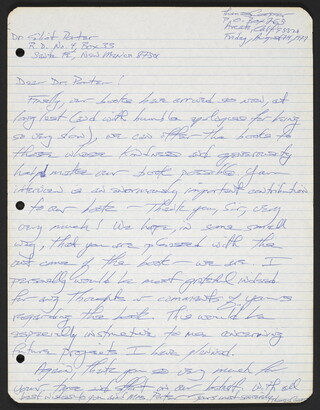 Dr. Eliot Porter
R.D. No. 4, Box 33
Santa Fe, New Mexico 87501
P.O. Box
Arcata, Calif
Friday, August 24, 1979
Dear Dr. Porter!
Finally, our books have arrived so now, at
long last (and with humble apologies for being
so very slow), we can offer this book to
those whose kindness and generosity
help make our book possible. Your
interview is an enormously important contribution
to our book — Thank you, Sir, very
very much! We hope, in some small
way, that you are pleased with the
out come of the book — we are. I
personally would be most grateful indeed
for any thoughts or comments of yours
regarding the book. This would be
especially instructive to me concerning
future projects I have planned.
Again, thank you so very much for
your time and in our behalf, with all
best wishes to you and Mrs. Porter — Yours most sincerely,